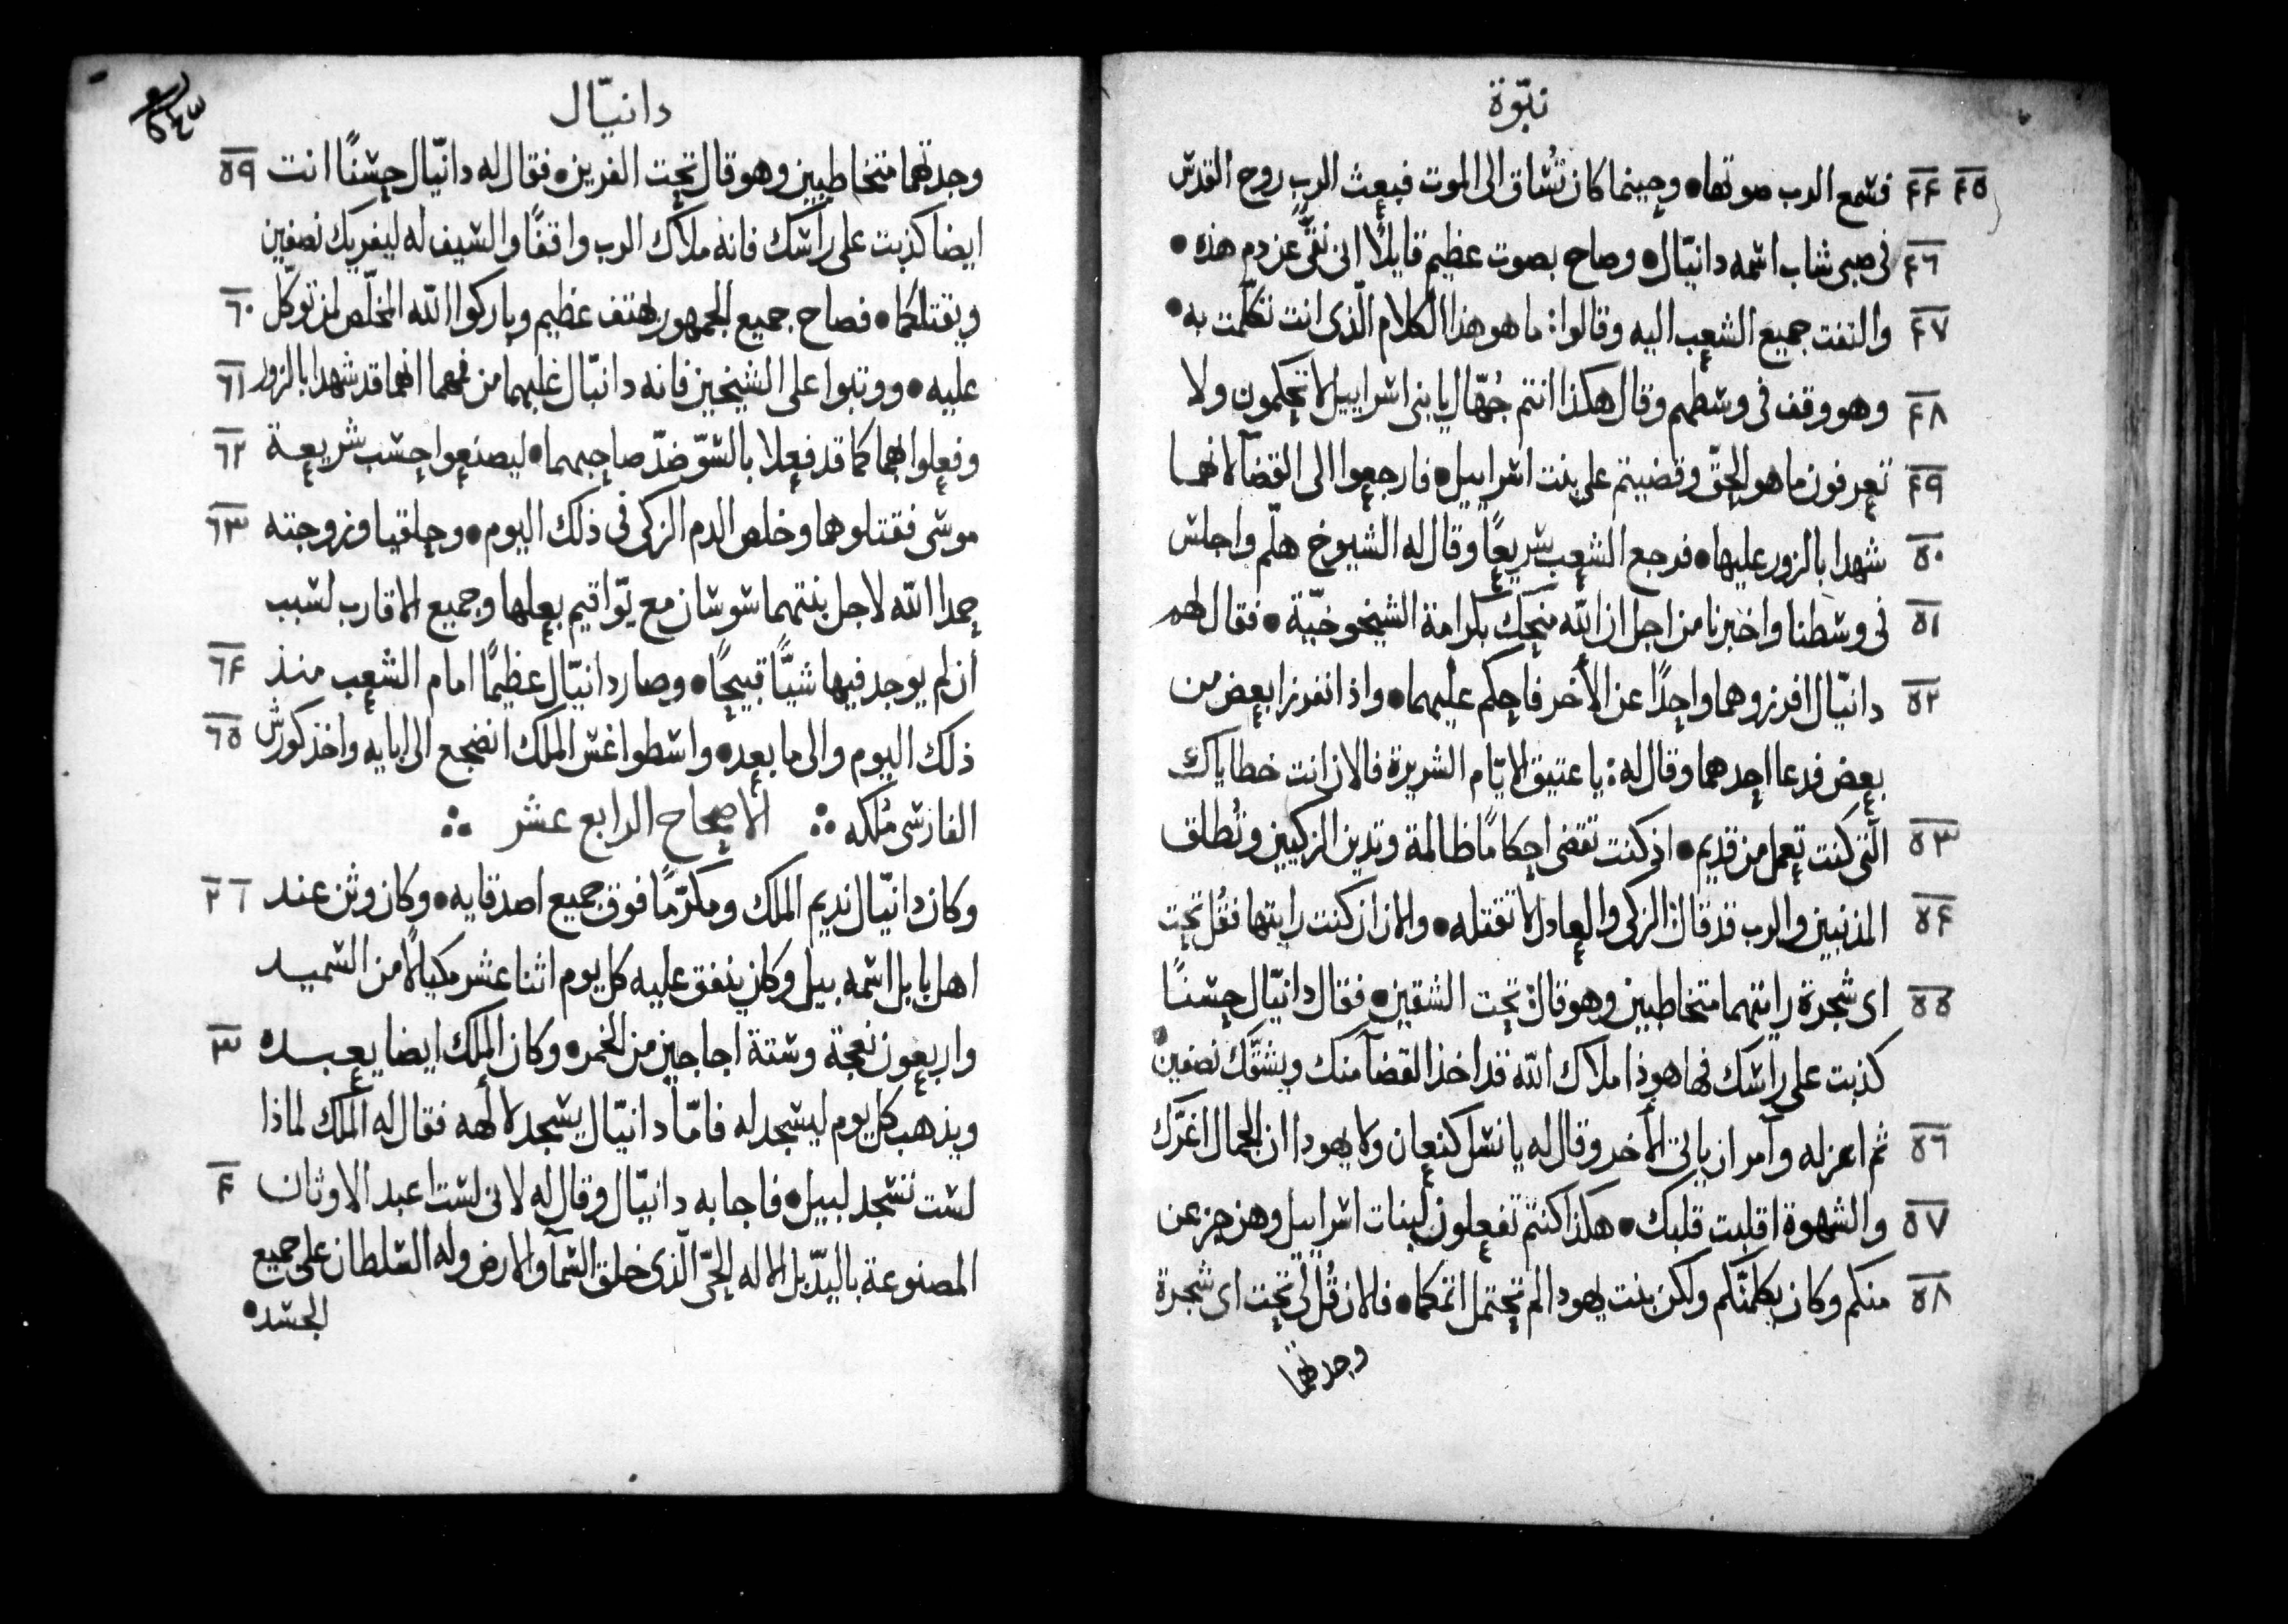 نبّوة
٤٤ ٤٥ فسمع الرب صوتها • وحينما كان تُساق الى الموت فبعث الرب روح القدس
٤٦ فى صبى شاب اسمه دانيّال • وصاح بصوت عظيم قايلًا انى نقىٌّ عن دم هذه •
٤٧ والتفت جميع الشعب اليه وقالوا: ما هو هذا الكلام الّذى انت تكلّمت به •
٤٨ وهو وقف فى وسطهم وقال هكذا انتم جُهّال يا بنى اسراييل لا تحكمون ولا
٤٩ تعرفون ما هو الحقّ وقضيتم على بنت اسراييل • فارجعوا الى القضآ لانهما
٥٠ شهدا بالزور عليها • فرجع الشعب سريعًا وقال له الشيوخ هلّم واجلس
٥١ فى وسطنا واخبرنا من اجل ان الله منحك بكرامة الشيخوخيّة • فقال لهم
٥٢ دانيّال افرزوهما واحدًا عن الأخر فاحكم عليهما • واذ انفرزا بعض من
بعض فدعا احدهما وقال له: يا عتيق الايّام الشريرة فالان انت خطاياك
٥٣ الّتى كنت تعمل من قديم • اذ كنت تقضى احكامًا ظالمة وتدين الزكيين وتُطلق
٥٤ المذنبين والرب قد قال: الزكى والعادل لا تقتله • والان ان كنت رايتها فقُل تحت
٥٥ اى شجرة رايتهما متخاطبين وهو قال: تحت الشقين • فقال دانيّال حسنًا
كذبت على راسك فها هوذا ملاك الله قد اخذ القضآ منك ويشقّك نصفين •
٥٦ ثم اعزله وآمر ان ياتى الأخر وقال له يا نسل كنعان ولا يهودا ان الجمال اغرّك
٥٧ والشهوة اقلبت قلبك • هكذا كنتم تفعلون لبنات اسراييل وهن جزعن
٥٨ منكم وكان يكلمنّكم ولكن بنت يهودا لم تحتمل اثمكما • فلان قُل لى تحت اى شجرة
وجدتهما
دانيّال
٥٩ وجدتهما متخاطبين وهو قال تحت الفرين • فقال له دانيّال حسنًا انت
ايضا كذبت على راسك فانه ملاك الرب واقفًا والسيف له ليفريك نصفين
٦٠ ويقتلكما • فصاح جميع الجمهور بهتف عظيم وباركوا الله المخلّص لمن توكّل
٦١ عليه • ووتبوا على الشيخين فانه دانيّال غلبهما من فمهما انهما قد شهدا بالزور
٦٢ وفعلوا بهما كما قد فعلا بالسّوّ ضدّ صاحبهما • ليصنعوا حسب شريعة
٦٣ موسى فقتلوهما وخلص الدم الزكى فى ذلك اليوم • وحلقيا وزوجته
حمدا الله لاجل بنتهما سوسان مع يّواقيم بعلها وجميع الاقارب لسبب
٦٤ ان لم يوجد فيها شيًّا قبيحًا • وصار دانيّال عظيمًا امام الشعب منذ
٦٥ ذلك اليوم والى ما بعد • واسطواغس الملك انضجع الى ابايه واخذ كورش
الفارسى مُلكه ∴ الاصحاح الرابع عشر ∴
٢ وكان دانيّال نديم الملك ومكرّمًا فوق جميع اصدقايه • وكان وثن عند
اهل بابل اسمه بيل وكان ينفق عليه كل يوم اثنا عشر مكيالًا من السميد
٣ واربعون نعجة وستة اجاجين من الخمر • وكان الملك ايضا يعبده
ويذهب كل يوم ليسجد له فامّا دانيّال يسجد لألهه فقال له الملك لماذا
٤ لست تسجد لبيل • فاجابه دانيّال وقال له لانى لست اعبد الاوثان
المصنوعة باليدّ بل الاله الحىّ الّذى خلق السمآ والارض وله السلطان على جميع
الجسد •